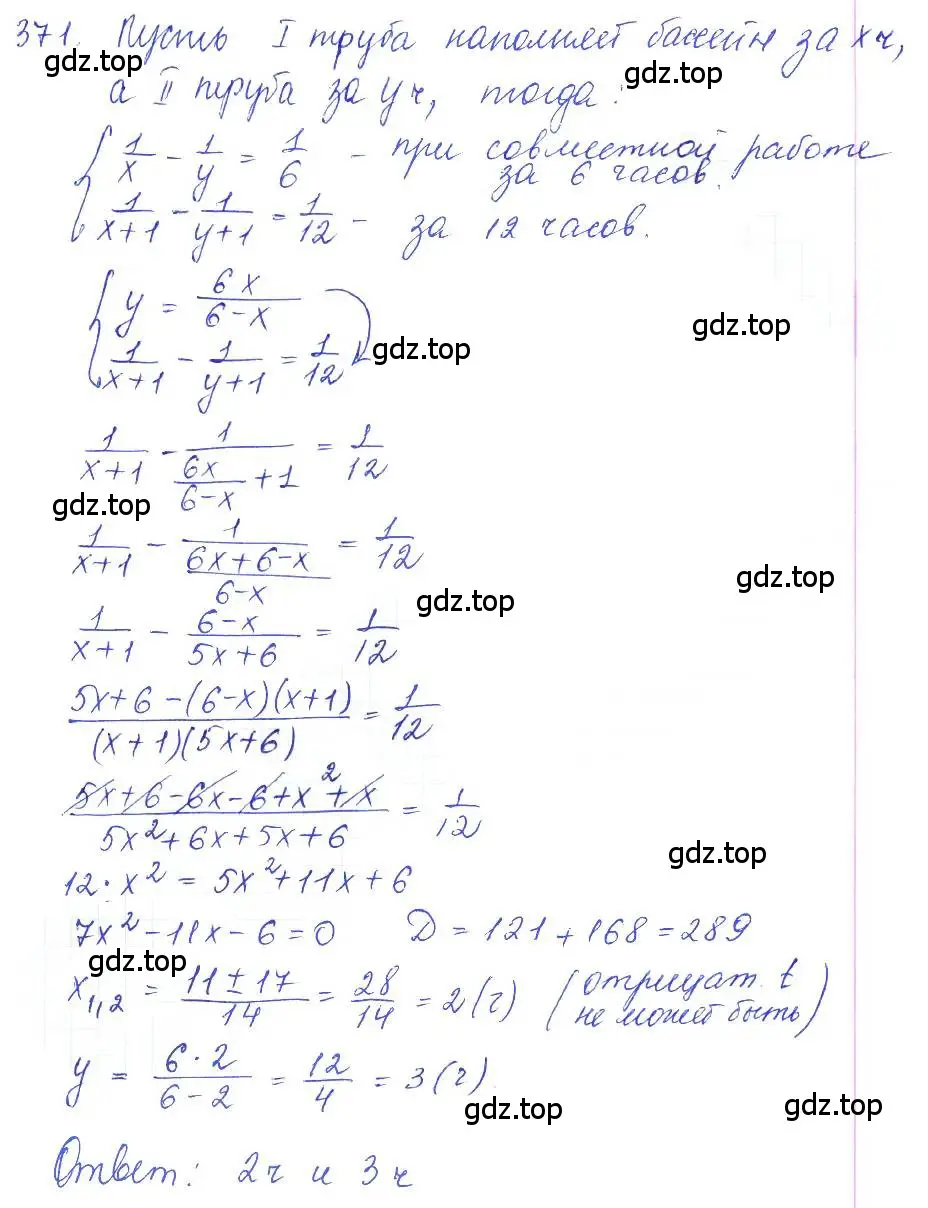 371. Пусть I труба наполняет бассейн за x ч,
gdz.top
gdz.top
а II труба за y ч, тогда:
1/x - 1/y = 1/6 - при совместной работе
за 6 часов.
1/(x+1) - 1/(y+1) = 1/12 - за 12 часов.
y = 6x/(6-x)
gdz.top
1/(x+1) - 1/(y+1) = 1/12
gdz.top
1/(x+1) - 1/(6x/(6-x) + 1) = 1/12
gdz.top
1/(x+1) - 1/((6x+6-x)/(6-x)) = 1/12
gdz.top
gdz.top
1/(x+1) - (6-x)/(5x+6) = 1/12
(5x+6-(6-x)(x+1))/((x+1)(5x+6)) = 1/12
(5x+6-6x-6+x²+x)/(5x²+6x+5x+6) = 1/12
gdz.top
12·x² = 5x²+11x+6
7x²-11x-6=0 D = 121+168=289
gdz.top
x₁,₂ = (11±17)/14 = 28/14 = 2(ч) (отрицат. t
не может быть)
y = (6·2)/(6-2) = 12/4 = 3(ч).
gdz.top
gdz.top
Ответ: 2ч и 3ч